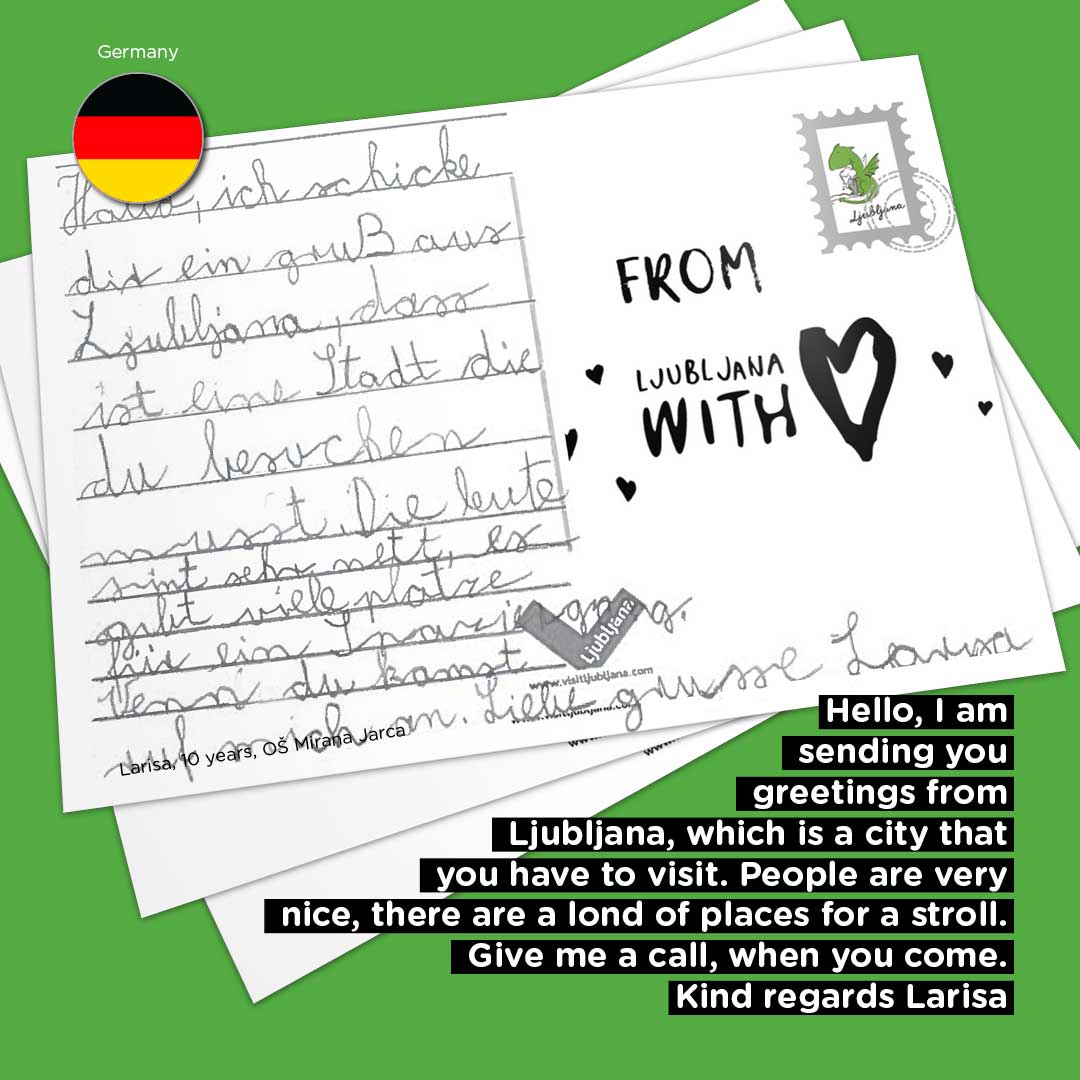 Germany
Hallo, ich schicke
dir ein gruß aus
Ljubljana, dass
ist eine Stadt die
du besuchen
musst. Die leute
sint sehr nett, es
gibt viele platze
für ein Spaziergang.
Venn du kamst
ruf mich an. Liebe grusse Larisa
Larisa, 10 years, OŠ Mirana Jarca
Ljubljana
FROM
LJUBLJANA
WITH
Ljubljana
www.visitljubljana.com
Hello, I am
sending you
greetings from
Ljubljana, which is a city that
you have to visit. People are very
nice, there are a lond of places for a stroll.
Give me a call, when you come.
Kind regards Larisa